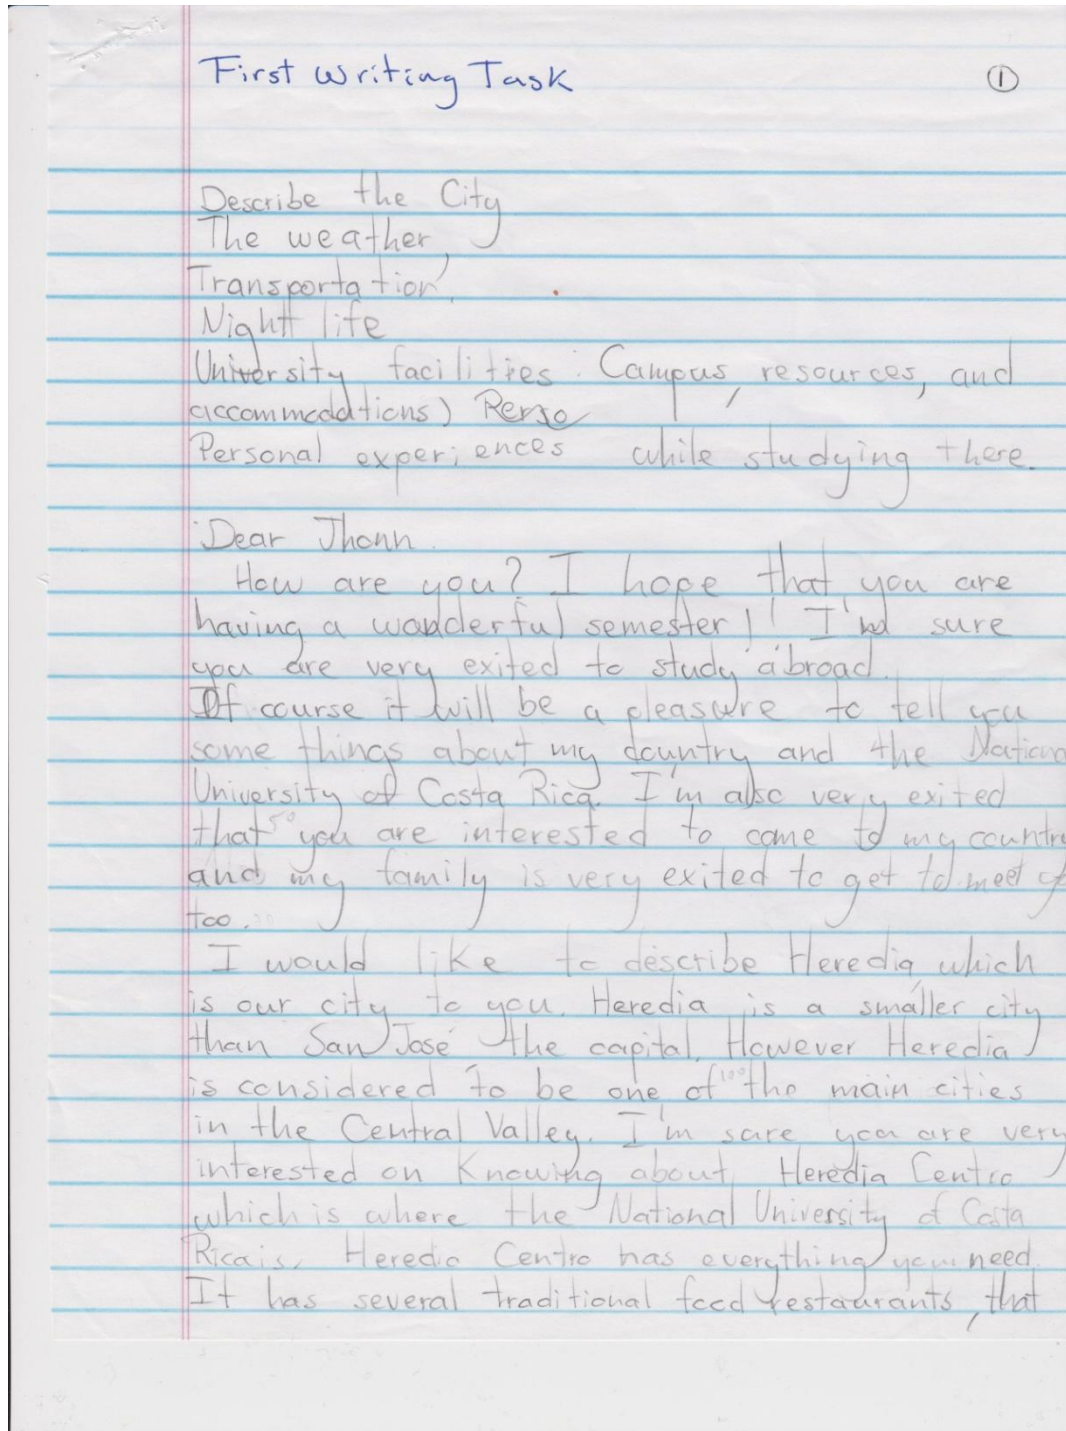 First Writing Task
①
Describe the City
The weather,
Transportation,
Night life
University facilities: Campus, resources, and
accommodations)
Personal experiences while studying there.
Dear Jhonn.
How are you? I hope that you are
having a wonderful semester! I'm sure
you are very exited to study abroad.
Of course it will be a pleasure to tell you
some things about my country and the Nationa
University of Costa Rica. I'm also very exited
that 50 you are interested to come to my countr
and my family is very exited to get to meet y
too.
I would like to describe Heredia, which
is our city to you. Heredia is a smaller city
than San José the capital. However Heredia
is considered to be one of 100 the main cities
in the Central Valley. I'm sure you are very
interested on Knowing about Heredia Centro
which is where the National University of Costa
Rica is. Heredia Centro has everything you need.
It has several traditional food restaurants, that